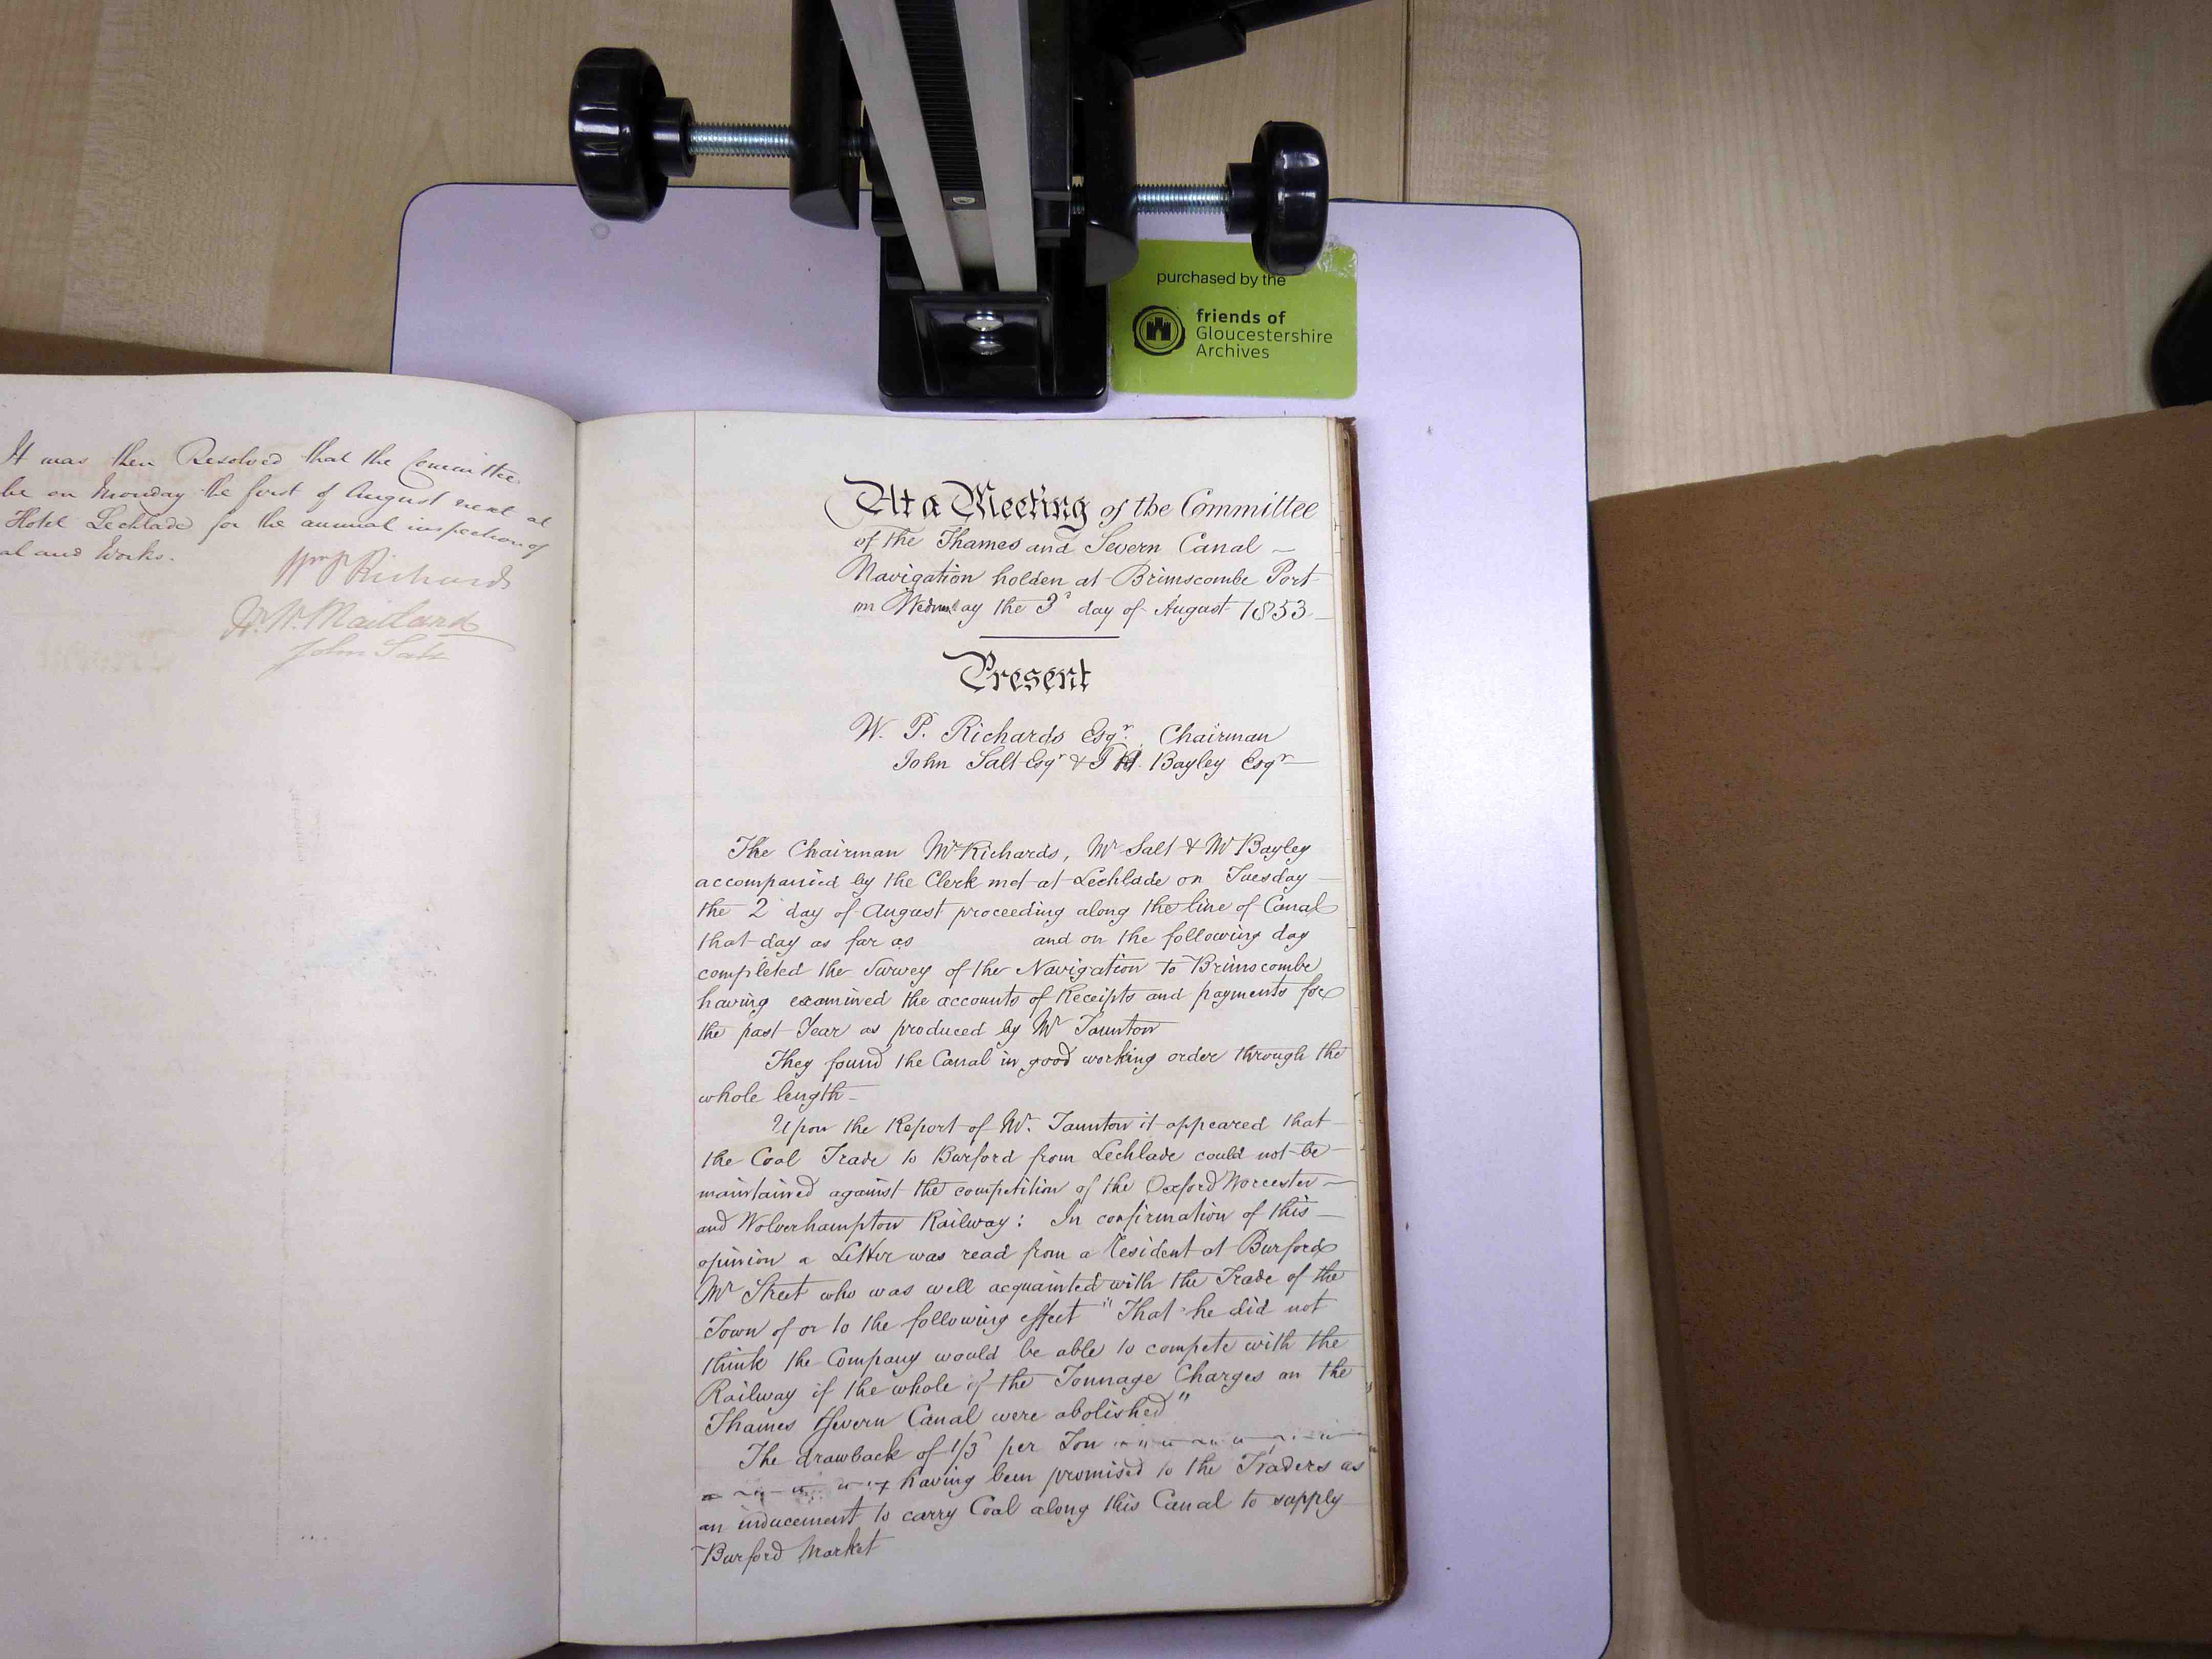 purchased by the
friends of
Gloucestershire
Archives
It was then Resolved that the Committee
be on Monday the first of August next at
Hotel Lechlade for the annual inspection of
al and Works.
Wm P Richards
W. W. Maitland
John Salt
At a Meeting of the Committee
of the Thames and Severn Canal –
Navigation holden at Brimscombe Port
on Wednesday the 3d day of August 1853
Present
W. P. Richards Esqr. Chairman
John Salt Esqr & T H. Bayley Esqr
The Chairman Mr Richards, Mr Salt & Mr Bayley
accompanied by the Clerk met at Lechlade on Tuesday
the 2d day of August proceeding along the line of Canal
that day as far as and on the following day
completed the Survey of the Navigation to Brimscombe
having examined the accounts of Receipts and payments for
the past Year as produced by Mr Taunton
They found the Canal in good working order through the
whole length –
Upon the Report of Mr. Taunton it appeared that
the Coal Trade to Burford from Lechlade could not be
maintained against the competition of the Oxford Worcester
and Wolverhampton Railway: In confirmation of this
opinion a Letter was read from a Resident at Burford
Mr Street who was well acquainted with the Trade of the
Town of or to the following effect "That he did not
think the Company would be able to compete with the
Railway if the whole of the Tonnage Charges on the
Thames & Severn Canal were abolished"
The drawback of 1/3d per Ton
having been promised to the Traders as
an inducement to carry Coal along this Canal to supply
Burford Market